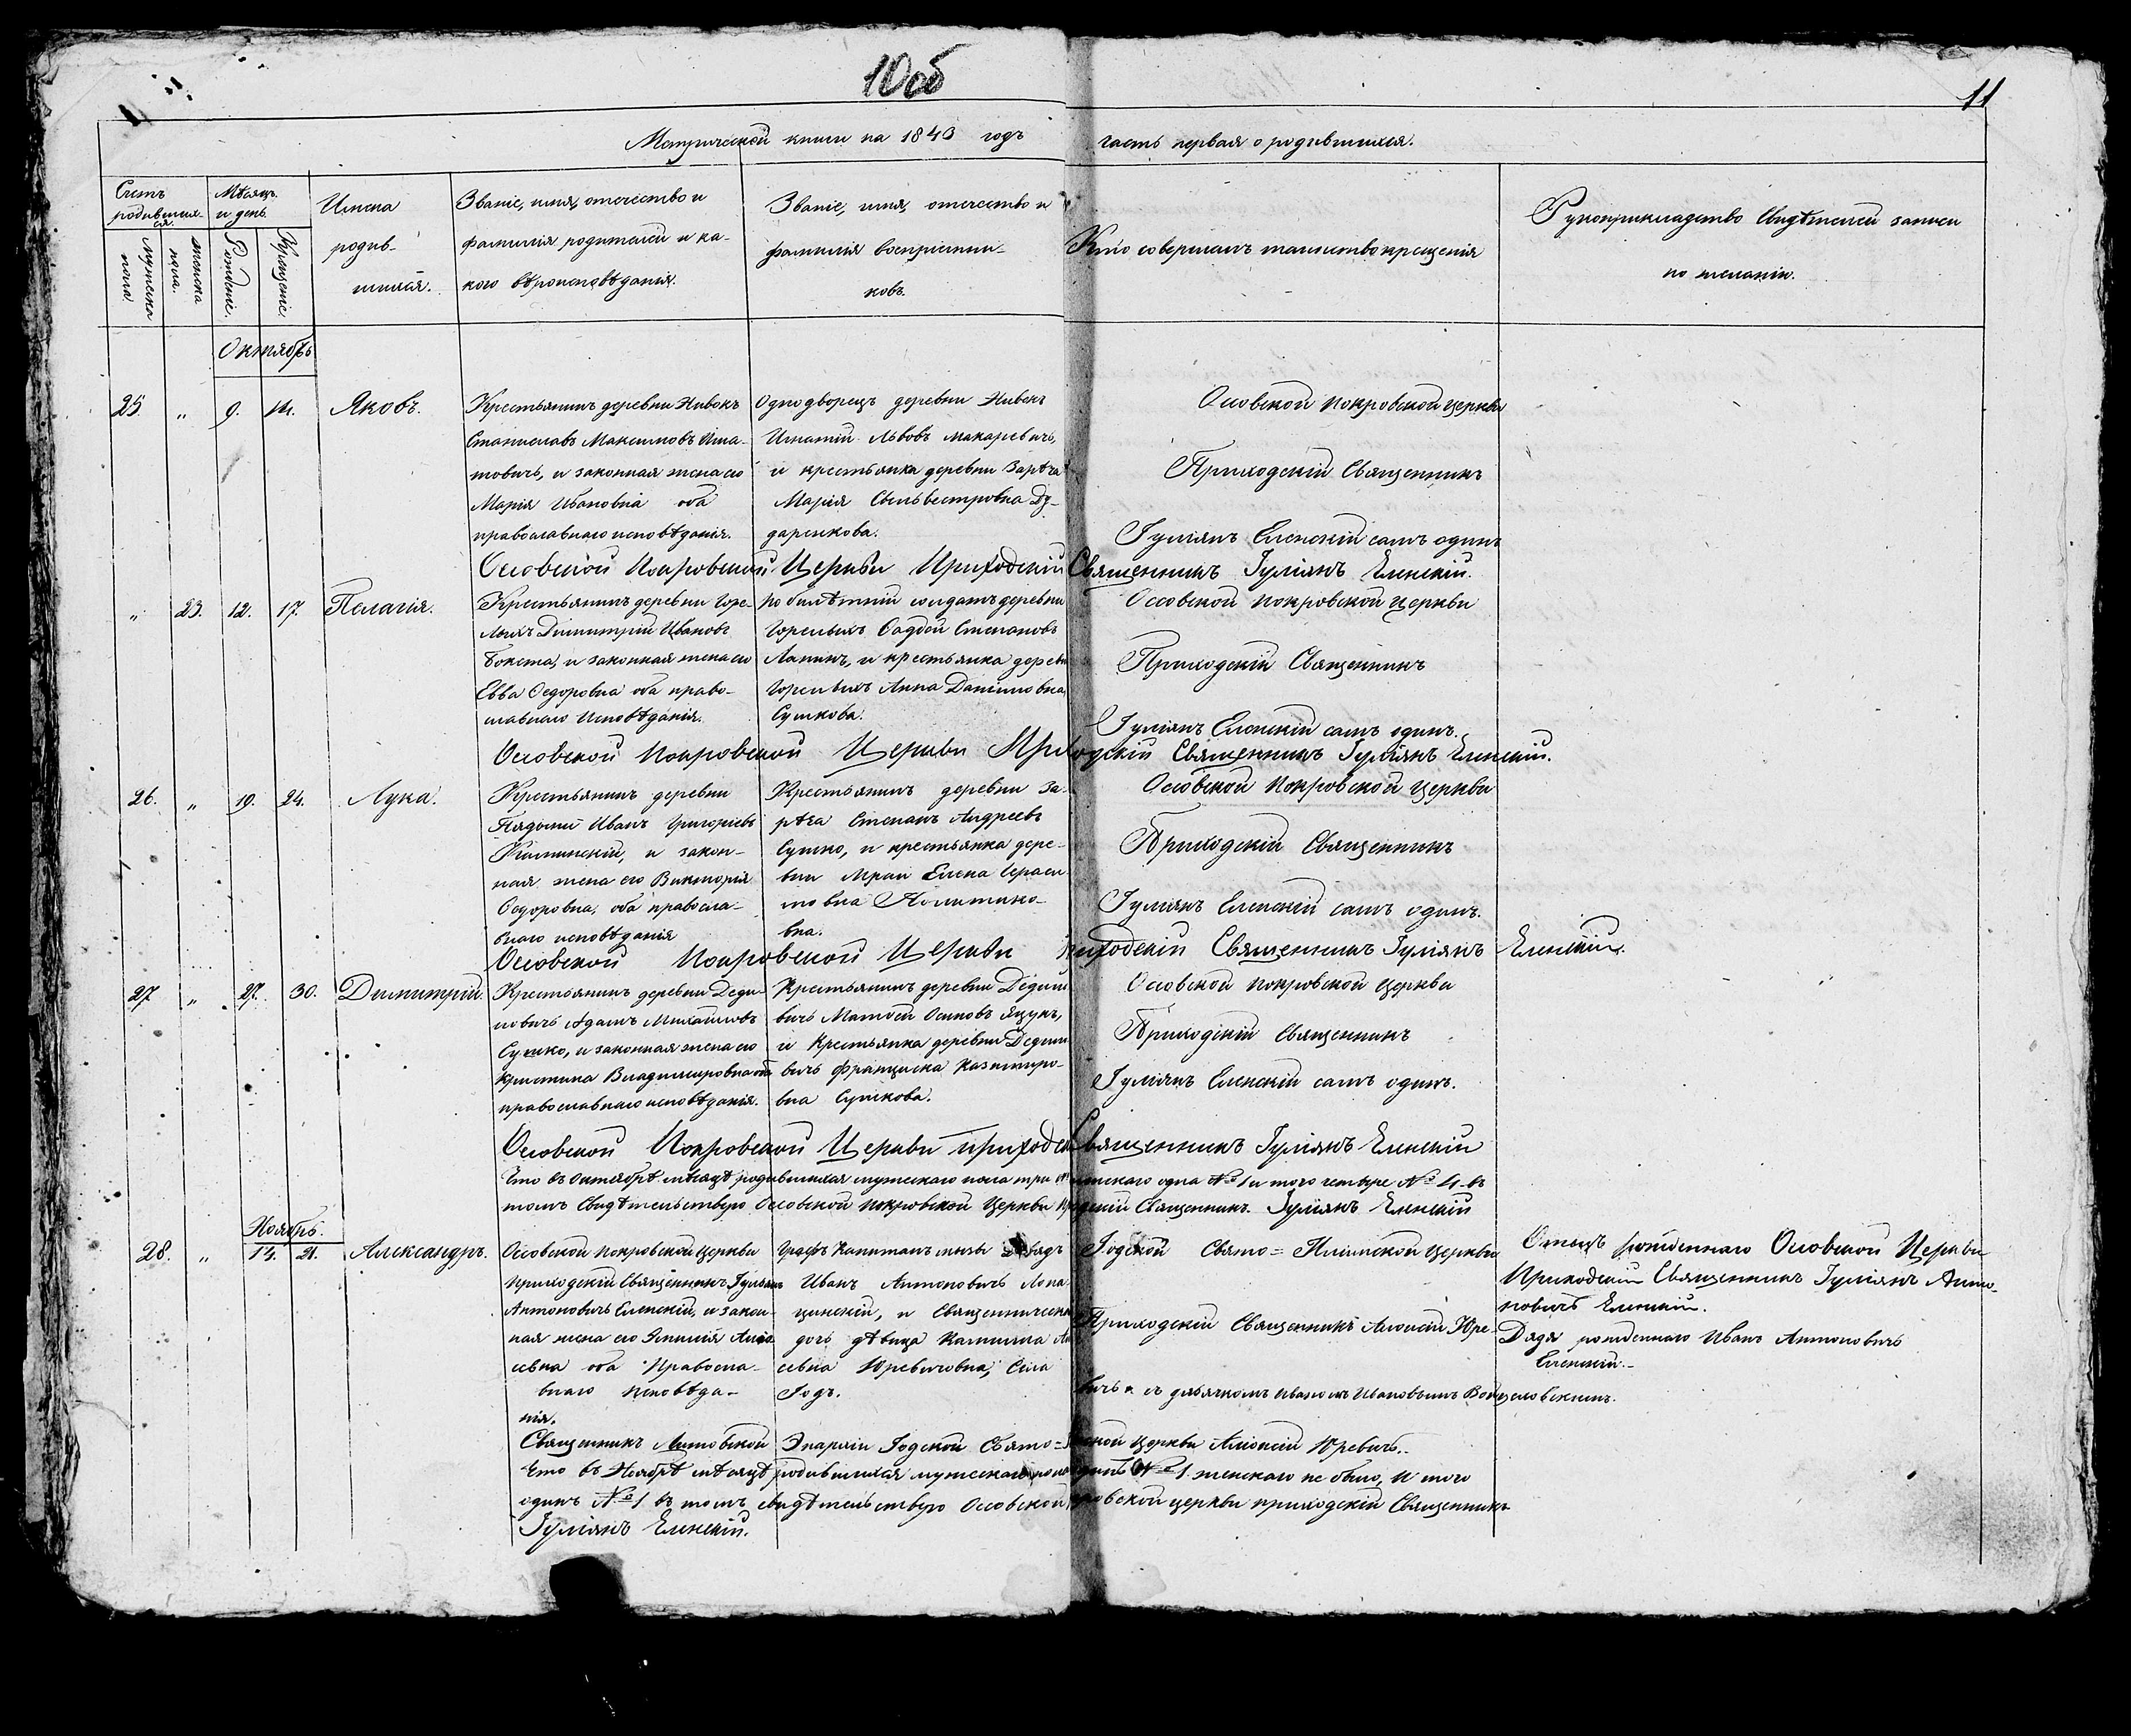 10об
11
Метрической книги на 1843 годъ часть первая о родившихся.
Счетъ родивших-ся.
мужеска пола
женска пола.
Мѣсяцъ и день.
Рожденіе.
Крещеніе.
Имена родив-шихся.
Званіе, имя, отечество и фамилія родителей и ка-кого вѣроисповѣданія.
Званіе, имя, отечество и фамилія воспріемни-ковъ.
Кто совершалъ таинство крещенія
Рукоприкладство Свидѣтелей записи по желанію.
Октябрь
25 „ 9. 14. Яковъ.
Крестьянинъ деревни Нивокъ
Станиславъ Максимовъ Игна-
товичъ, и законная жена его
Марія Ивановна оба
православнаго исповѣданія.
Однодворецъ деревни Нивокъ
Игнатій Львовъ Макаревичъ,
и крестьянка деревни Зарѣча
Марія Сильвестровна Ду-
даренкова.
Оссовской Покровской церкви
Приходскій Священникъ
Іуліянъ Еленскій самъ одинъ
Оссовской Покровской Церкви Приходскій Священникъ Іуліянъ Еленскій.
„ 23. 12. 17. Пелагія.
Крестьянинъ деревни Горе-
лыхъ Димитрій Ивановъ
Бокста, и законная жена его
Евва Ѳедоровна оба право-
славнаго Исповѣданія.
солдатъ деревни
Горелыхъ Степановъ
Лапинъ, и крестьянка деревни
Горелыхъ Анна Даніиловна
Сушкова.
Оссовской Покровской Церкви
Приходскій Священникъ
Іуліянъ Еленскій самъ одинъ.
Оссовской Покровской Церкви Приходскій Священникъ Іуліянъ Еленскій.
26. „ 19. 24. Лука.
Крестьянинъ деревни
Иванъ Григоріевъ
и закон-
ная жена его Викторія
Ѳедоровна, оба правосла-
внаго исповѣданія
Крестьянинъ деревни За-
рѣча Степанъ Андреевъ
Сушко, и крестьянка дере-
вни Елена Гераси-
мовна
вна.
Оссовской Покровской Церкви
Приходскій Священникъ
Іуліянъ Еленскій самъ одинъ.
Оссовской Покровской Церкви Приходскій Священникъ Іуліянъ Еленскій.
27 „ 27. 30. Димитрій.
Крестьянинъ деревни Деди-
новичъ Адамъ Михайловъ
Сушко, и законная жена его
Кристина Владимировна оба
православнаго исповѣданія.
Крестьянинъ деревни
Матѳей Осиповъ Яцукъ,
и Крестьянка деревни
Франциска Казимиро-
вна Сушкова.
Оссовской Покровской Церкви
Приходскій Священникъ
Іуліянъ Еленскій самъ одинъ.
Оссовской Покровской Церкви приходскій Священникъ Іуліянъ Еленскій
Что въ Октябрѣ мѣсяцѣ родившихся мужескаго пола три женскаго одна № 1 и того четыре № 4 въ
томъ Свидѣтельствую Оссовской Покровской Церкви Священникъ Іуліянъ Еленскій
Ноябрь.
28. „ 14. 21. Александръ.
Оссовской Покровской Церкви
Приходскій Священникъ Іуліянъ
Антоновичъ Еленскій, и закон-
ная жена его
оба Правосла-
внаго исповѣда-
нія.
Графъ Капитанъ
Иванъ Антоновичъ Лопа-
цинскій, и Священническая
дочь дѣвица Камилла
Юревичовна, Села
Годъ.
Годской Свято= Церкви
Приходскій Священникъ Алоисій Юре-
вичъ съ дьячкомъ Иваномъ Ивановымъ
Отецъ рожденнаго Оссовской Церкви
Приходскій Священникъ Іуліянъ Анто-
новичъ Еленскій.
Дядя рожденнаго Иванъ Антоновичъ
Еленскій.
Священникъ Литовской Эпархіи Годской Свято= церкви Алоисій Юревичъ.
Что въ Ноябрѣ мѣсяцѣ родившихся мужескаго пола одинъ № 1 женскаго не было, и того
одинъ № 1 въ томъ свидѣтельствую Оссовской Покровской церкви приходскій Священникъ
Іуліянъ Еленскій.